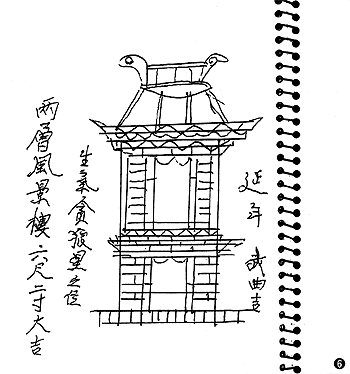 延年 武曲吉
生氣貪狼星之位
兩層風景樓六尺二寸大吉
6